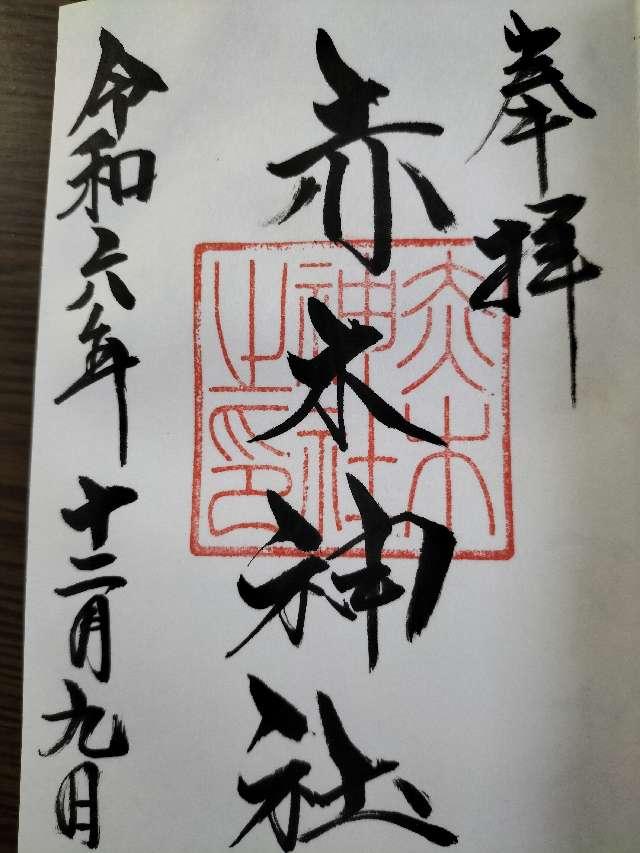 奉拝
赤木神社
赤木
神社
之印
令和六年十二月九日